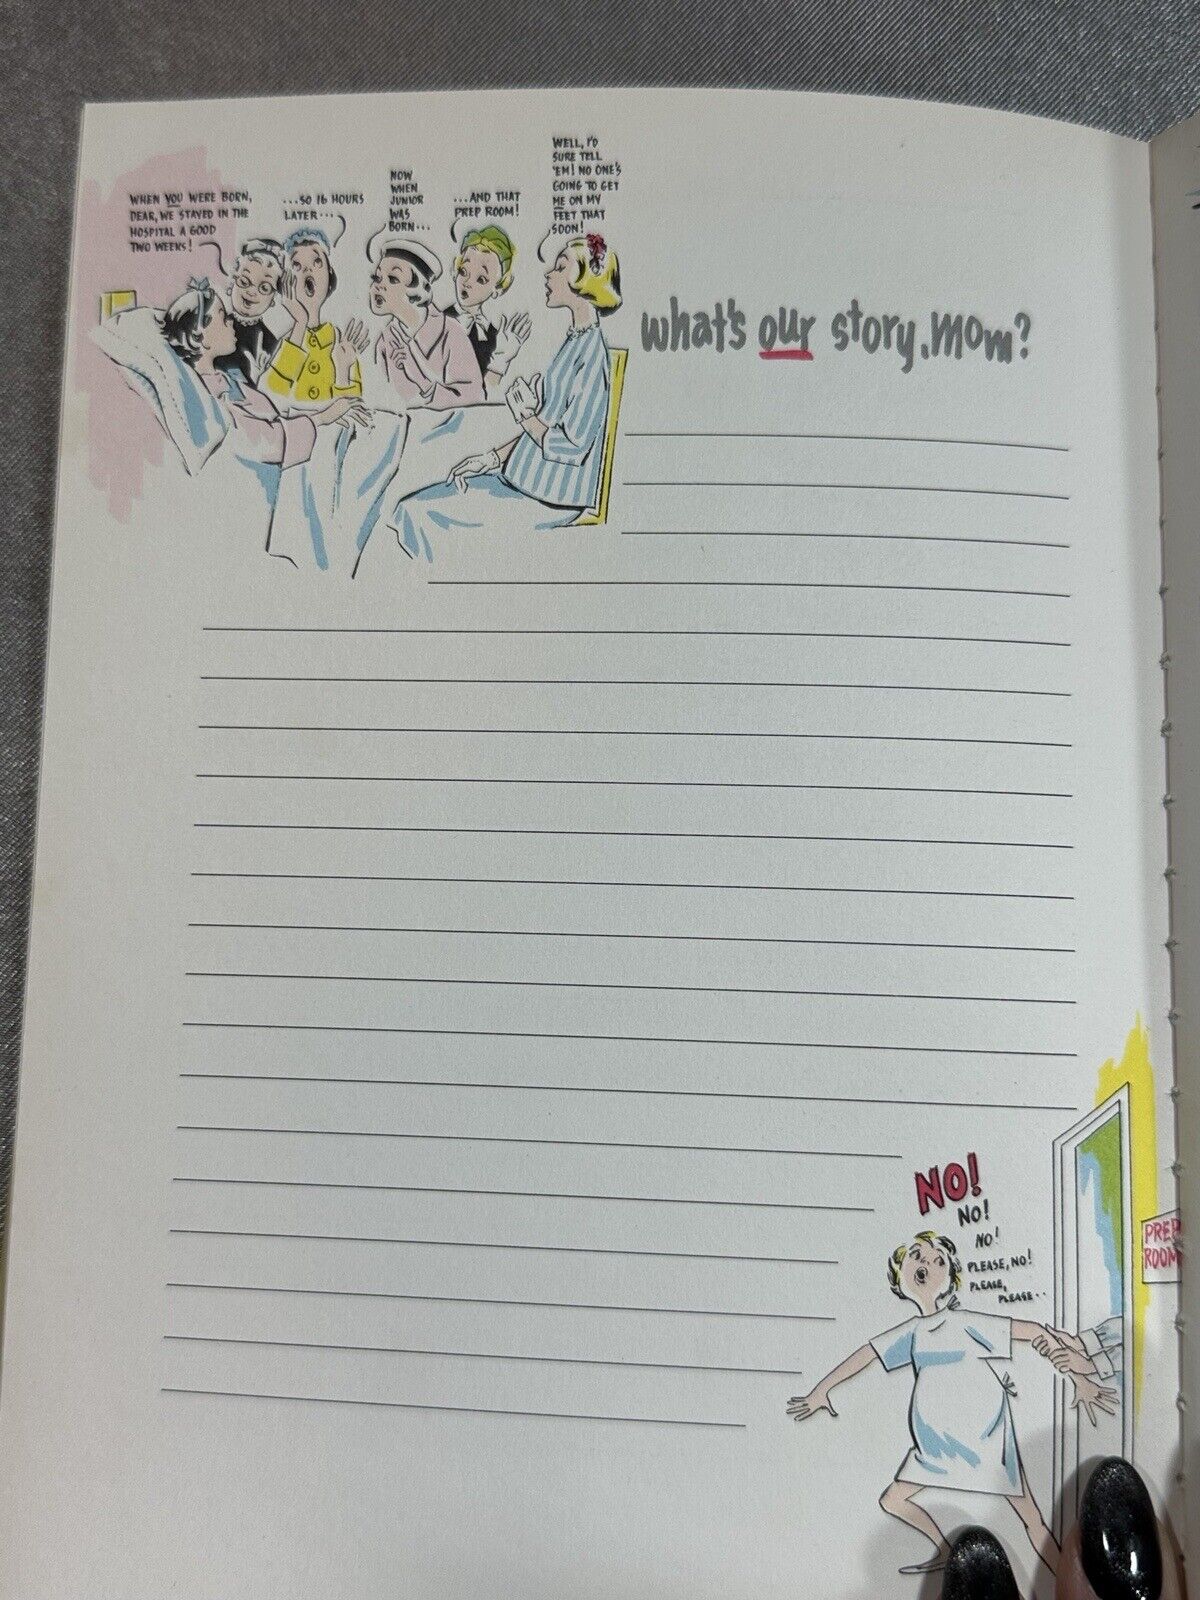 WHEN YOU WERE BORN,
DEAR, WE STAYED IN THE
HOSPITAL A GOOD
TWO WEEKS!
...SO 16 HOURS
LATER...
NOW
WHEN
JUNIOR
WAS
BORN...
...AND THAT
PREP ROOM!
WELL, I'D
SURE TELL
'EM! NO ONE'S
GOING TO GET
ME ON MY
FEET THAT
SOON!
what's our story, mom?
NO!
NO!
NO!
PLEASE, NO!
PLEASE,
PLEASE..
PREP
ROOM